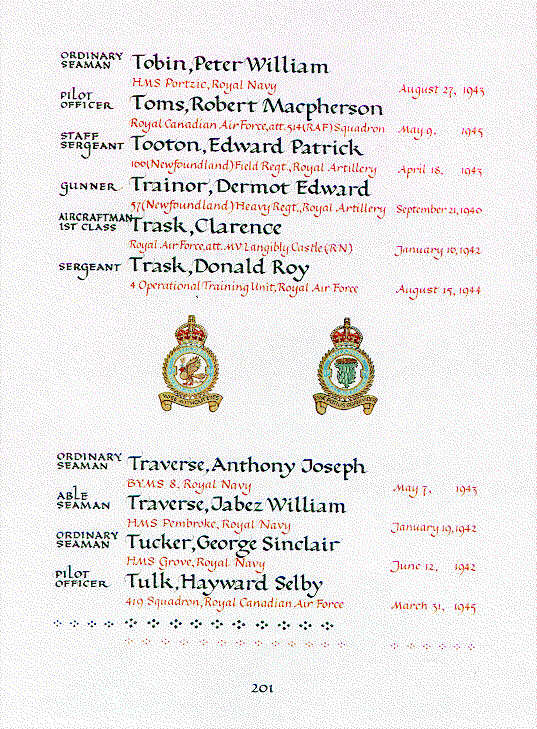 ORDINARY SEAMAN Tobin, Peter William
HMS Portzic, Royal Navy August 27, 1943
PILOT OFFICER Toms, Robert Macpherson
Royal Canadian Air Force, att. 514 (RAF) Squadron May 9, 1945
STAFF SERGEANT Tooton, Edward Patrick
166 (Newfoundland) Field Regt., Royal Artillery April 18, 1943
GUNNER Trainor, Dermot Edward
57 (Newfoundland) Heavy Regt., Royal Artillery September 21, 1940
AIRCRAFTMAN 1ST CLASS Trask, Clarence
Royal Air Force, att. MV Langibly Castle (RN) January 16, 1942
SERGEANT Trask, Donald Roy
4 Operational Training Unit, Royal Air Force August 15, 1944
ORDINARY SEAMAN Traverse, Anthony Joseph
BYMS 8, Royal Navy May 7, 1943
ABLE SEAMAN Traverse, Jabez William
HMS Pembroke, Royal Navy January 19, 1942
ORDINARY SEAMAN Tucker, George Sinclair
HMS Grove, Royal Navy June 12, 1942
PILOT OFFICER Tulk, Hayward Selby
419 Squadron, Royal Canadian Air Force March 31, 1945
201